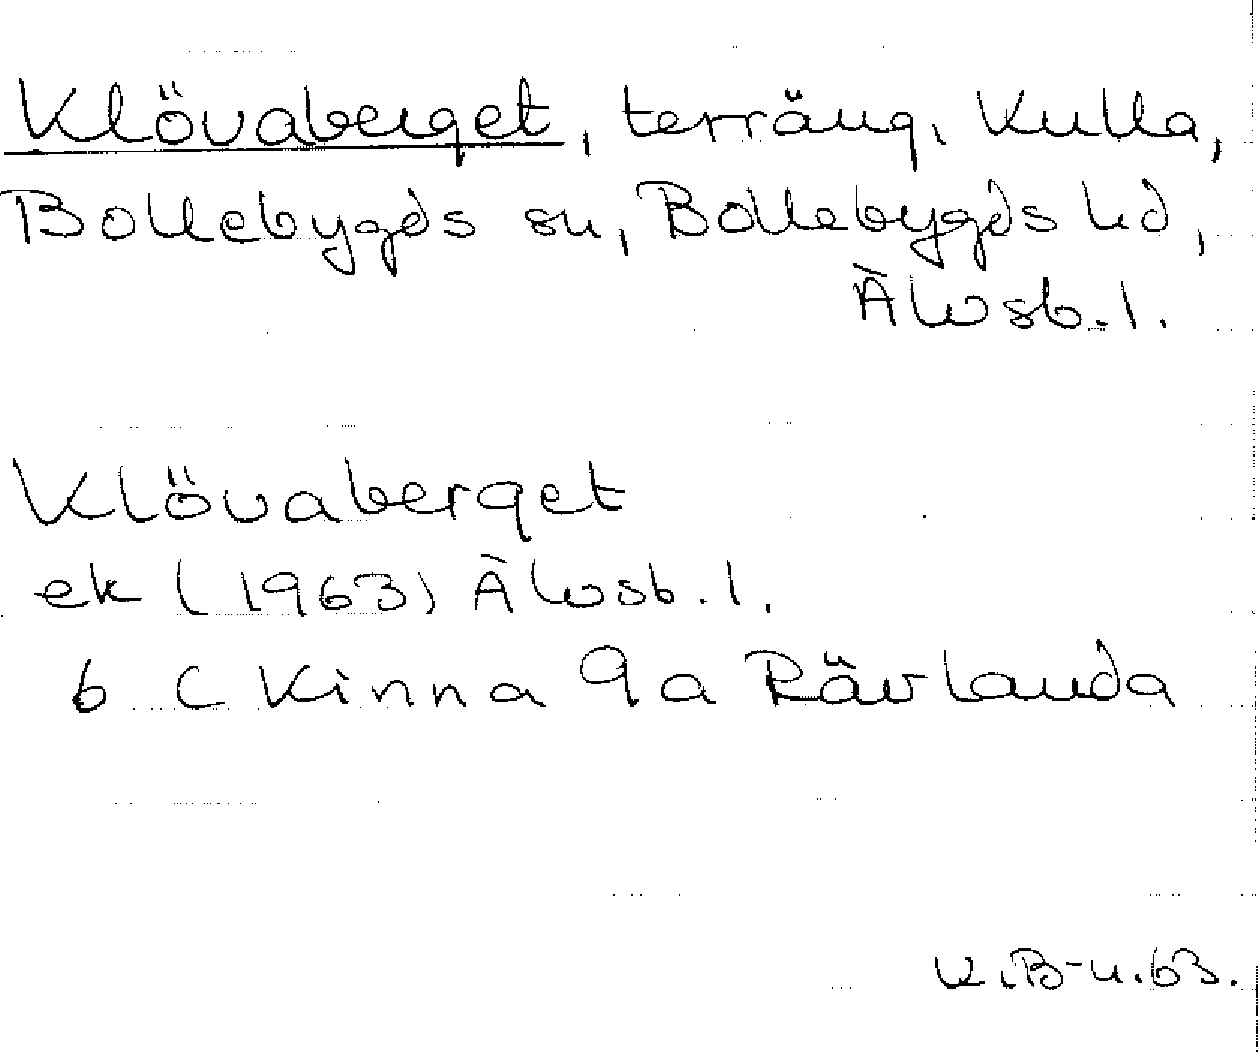 Klövaberget, terräng, Kulla,
Bollebygds sn, Bollebygds hd,
Älvsb. l.
Klövaberget
ek (1963) Älvsb. l.
6 C Kinna 9a Rävlanda
K.B-n. 63.